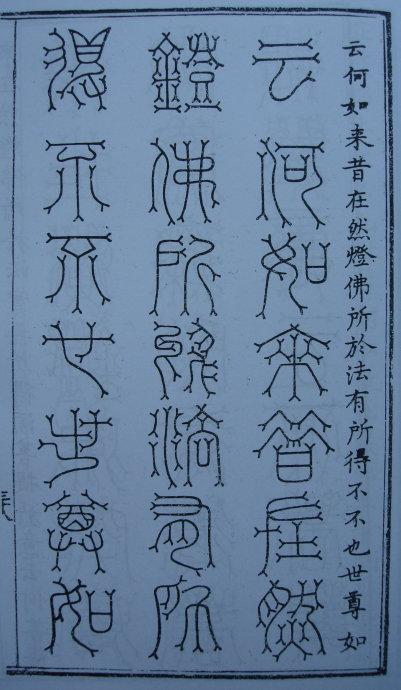 云何如来昔在然燈佛所於法有所得不不也世尊如
云何如來昔在然
鐙佛所於法有所
得不不也世尊如